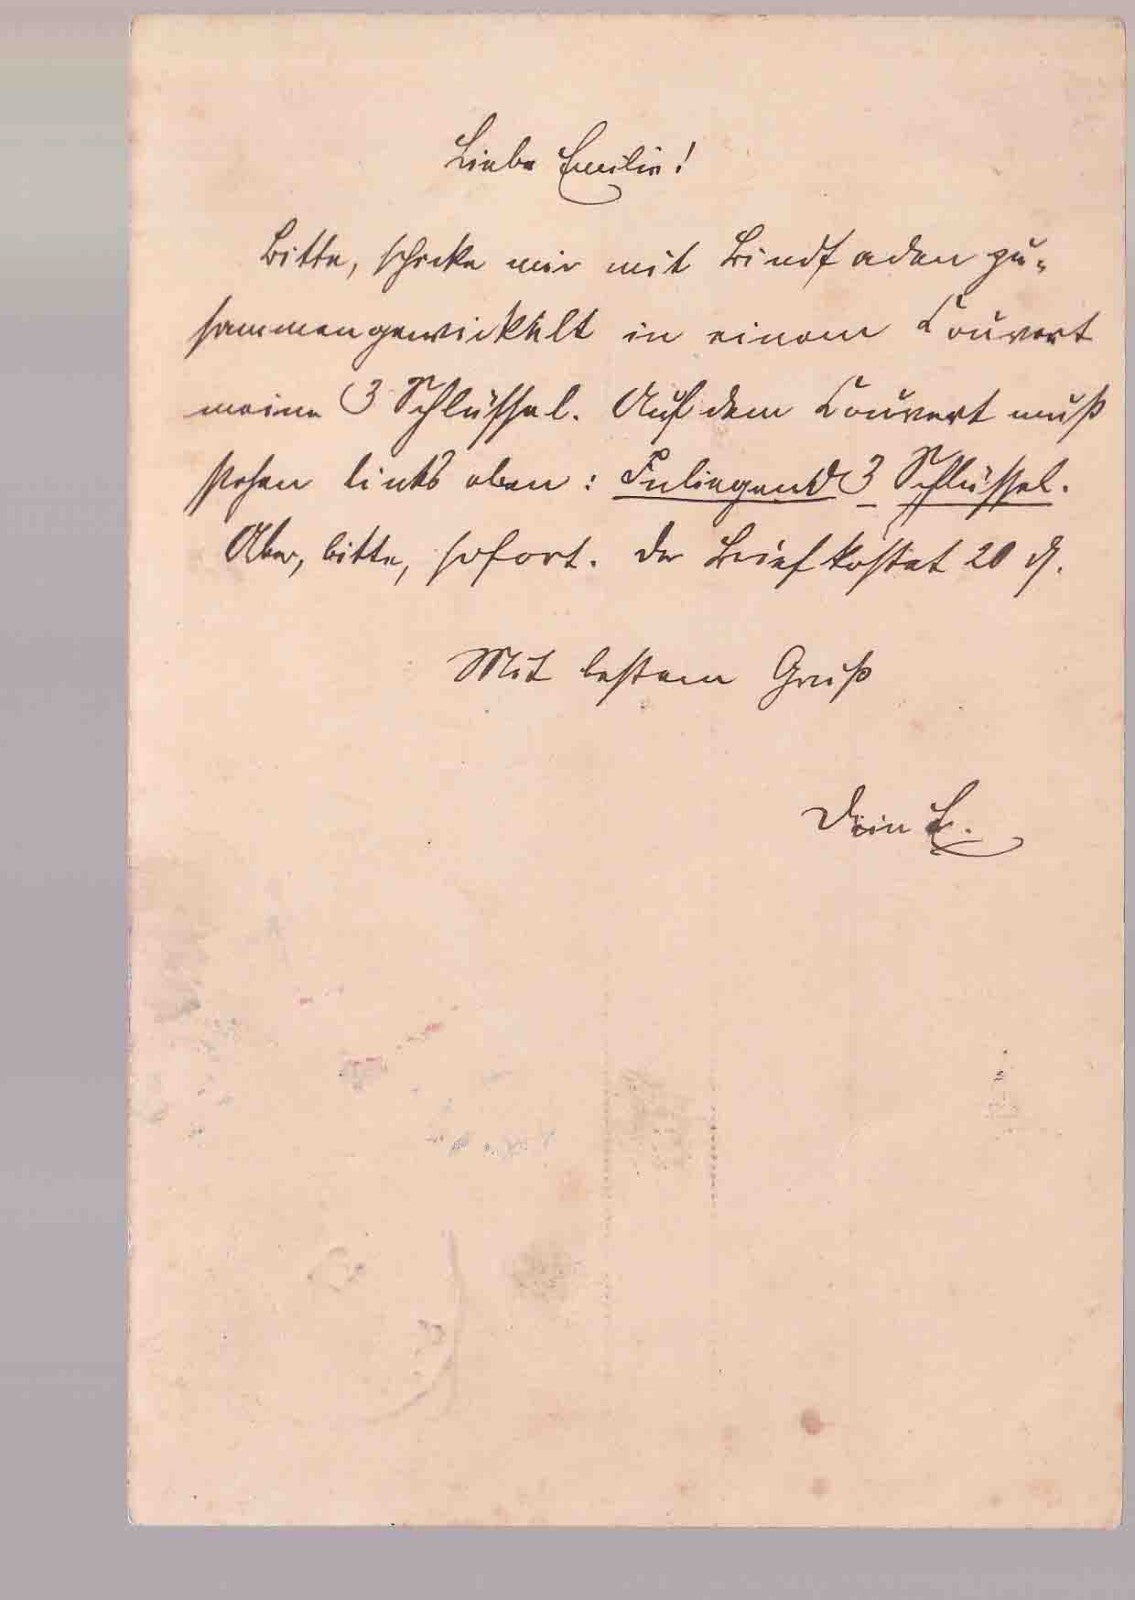 Liebe Emilie!
Bitte, schicke mir mit Bindfaden zu-
sammengewickelt in einem Couvert
meine 3 Schlüssel. Auf dem Couvert muß
stehen links oben: Inliegend 3 Schlüssel.
Aber, bitte, sofort. Der Brief kostet 20 ₰.
Mit bestem Gruß
Dein E.